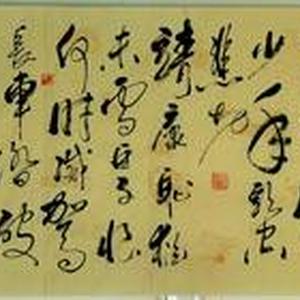 少年頭空
悲切
靖康恥猶
未雪臣子恨
何時滅駕
長車踏破